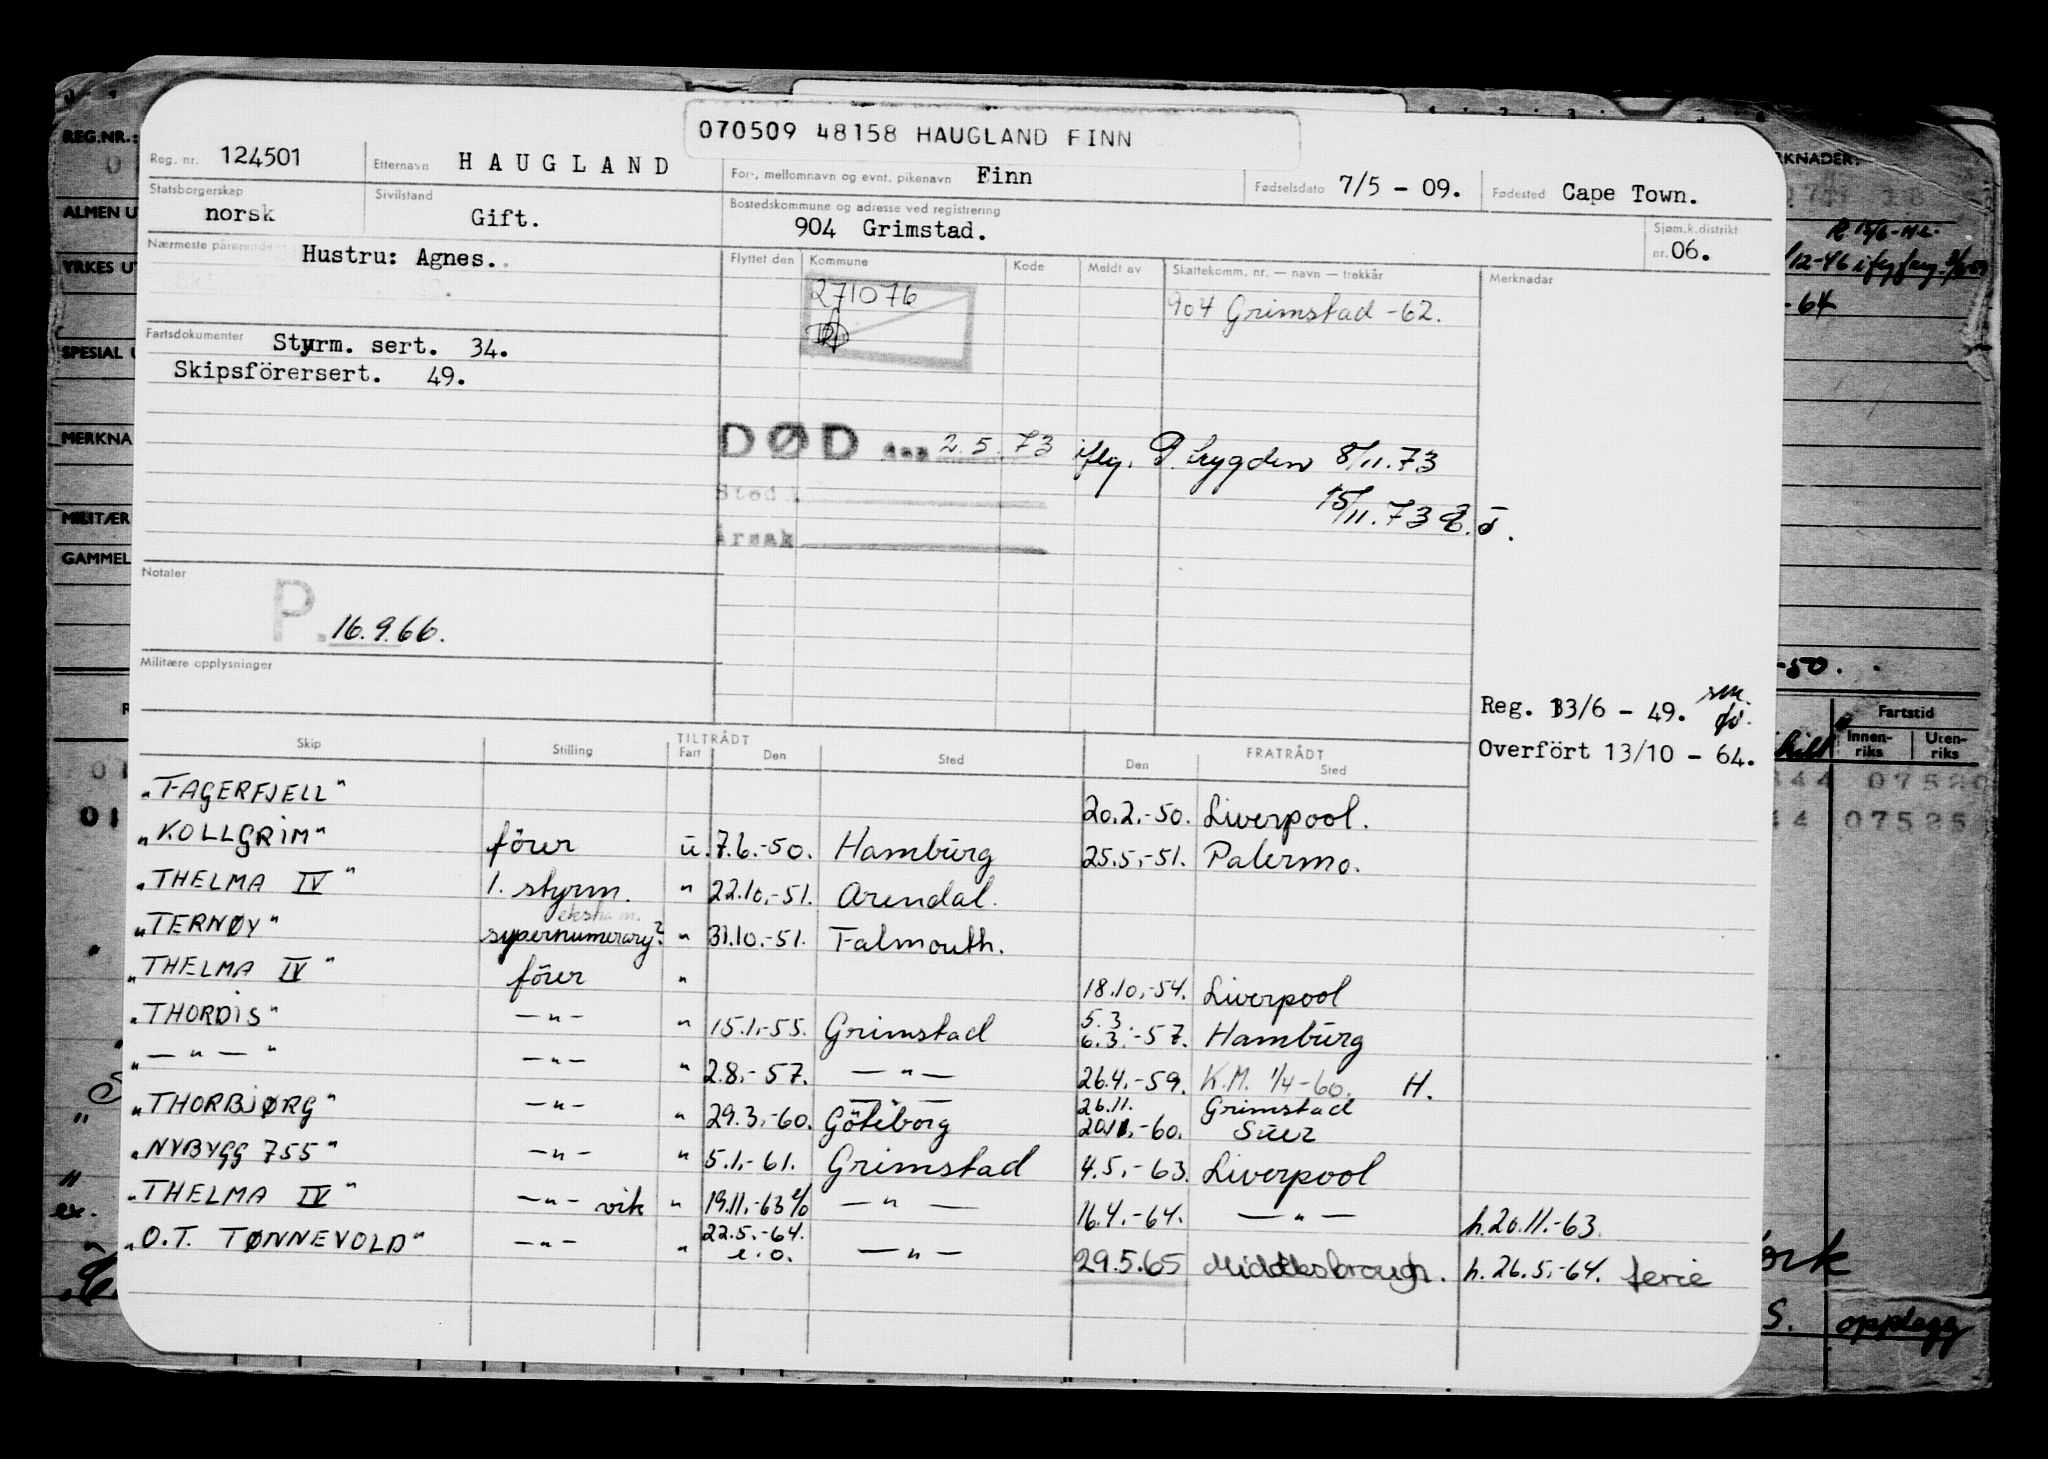 070509 48158 HAUGLAND FINN
Reg. nr. 124501 Etternavn HAUGLAND For-, mellomnavn og evnt. pikenavn Finn Fødselsdato 7/5 - 09. Fødested Cape Town.
Statsborgerskap norsk Sivilstand Gift. Bostedskommune og adresse ved registrering 904 Grimstad. Sjøm.k.distrikt nr. 06.
Nærmeste pårørende Hustru: Agnes.
Flyttet den Kommune Kode Meldt av Skattekomm. nr. — navn — trekkår Merknadar
271076
904 Grimstad -62.
Fartsdokumenter Styrm. sert. 34.
Skipsförersert. 49.
DØD den 2.5.73 iflg. P. trygden 8/11.73
Sted
15/11.73
Årsak
Notater
P. 16.9.66.
Militære opplysninger
Reg. 13/6 - 49.
Overfört 13/10 - 64.
TILTRÅDT FRATRÅDT
Skip Stilling Fart Den Sted Den Sted
"FAGERFJELL" 20.2.-50. Liverpool.
"KOLLGRIM" förer u. 7.6.-50. Hamburg 25.5.-51. Palermo.
"THELMA IV" 1. styrm. " 22.10.-51. Arendal.
"TERNØY" supernumerary? " 31.10.-51. Falmouth.
"THELMA IV" förer " 18.10.-54. Liverpool
"THORDIS" —"— " 15.1.-55. Grimstad 5.3. 6.3.-57. Hamburg
"—"—" —"— " 2.8.-57. —"— 26.4.-59. K.M. 1/4-60. H.
"THORBJØRG" —"— " 29.3.-60. Göteborg 26.11. Grimstad
20.11.-60. Suez
"NYBYGG 755" —"— " 5.1.-61. Grimstad 4.5.-63. Liverpool
"THELMA IV" —"— vik " 19.11.-63 —"— 16.4.-64. —"— h.20.11.-63.
"O.T. TØNNEVOLD" —"— " 22.5.-64. e.o. —"— 29.5.65 Middlesbrough. h.26.5.-64. ferie
REG.NR.:
ALMEN U
YRKES U
SPESIAL
MERKNA
MILITÆR
GAMMEL
RKNADER:
-64
-50.
Fartstid
Innen-riks Uten-riks
07525
ork
S. opplegg